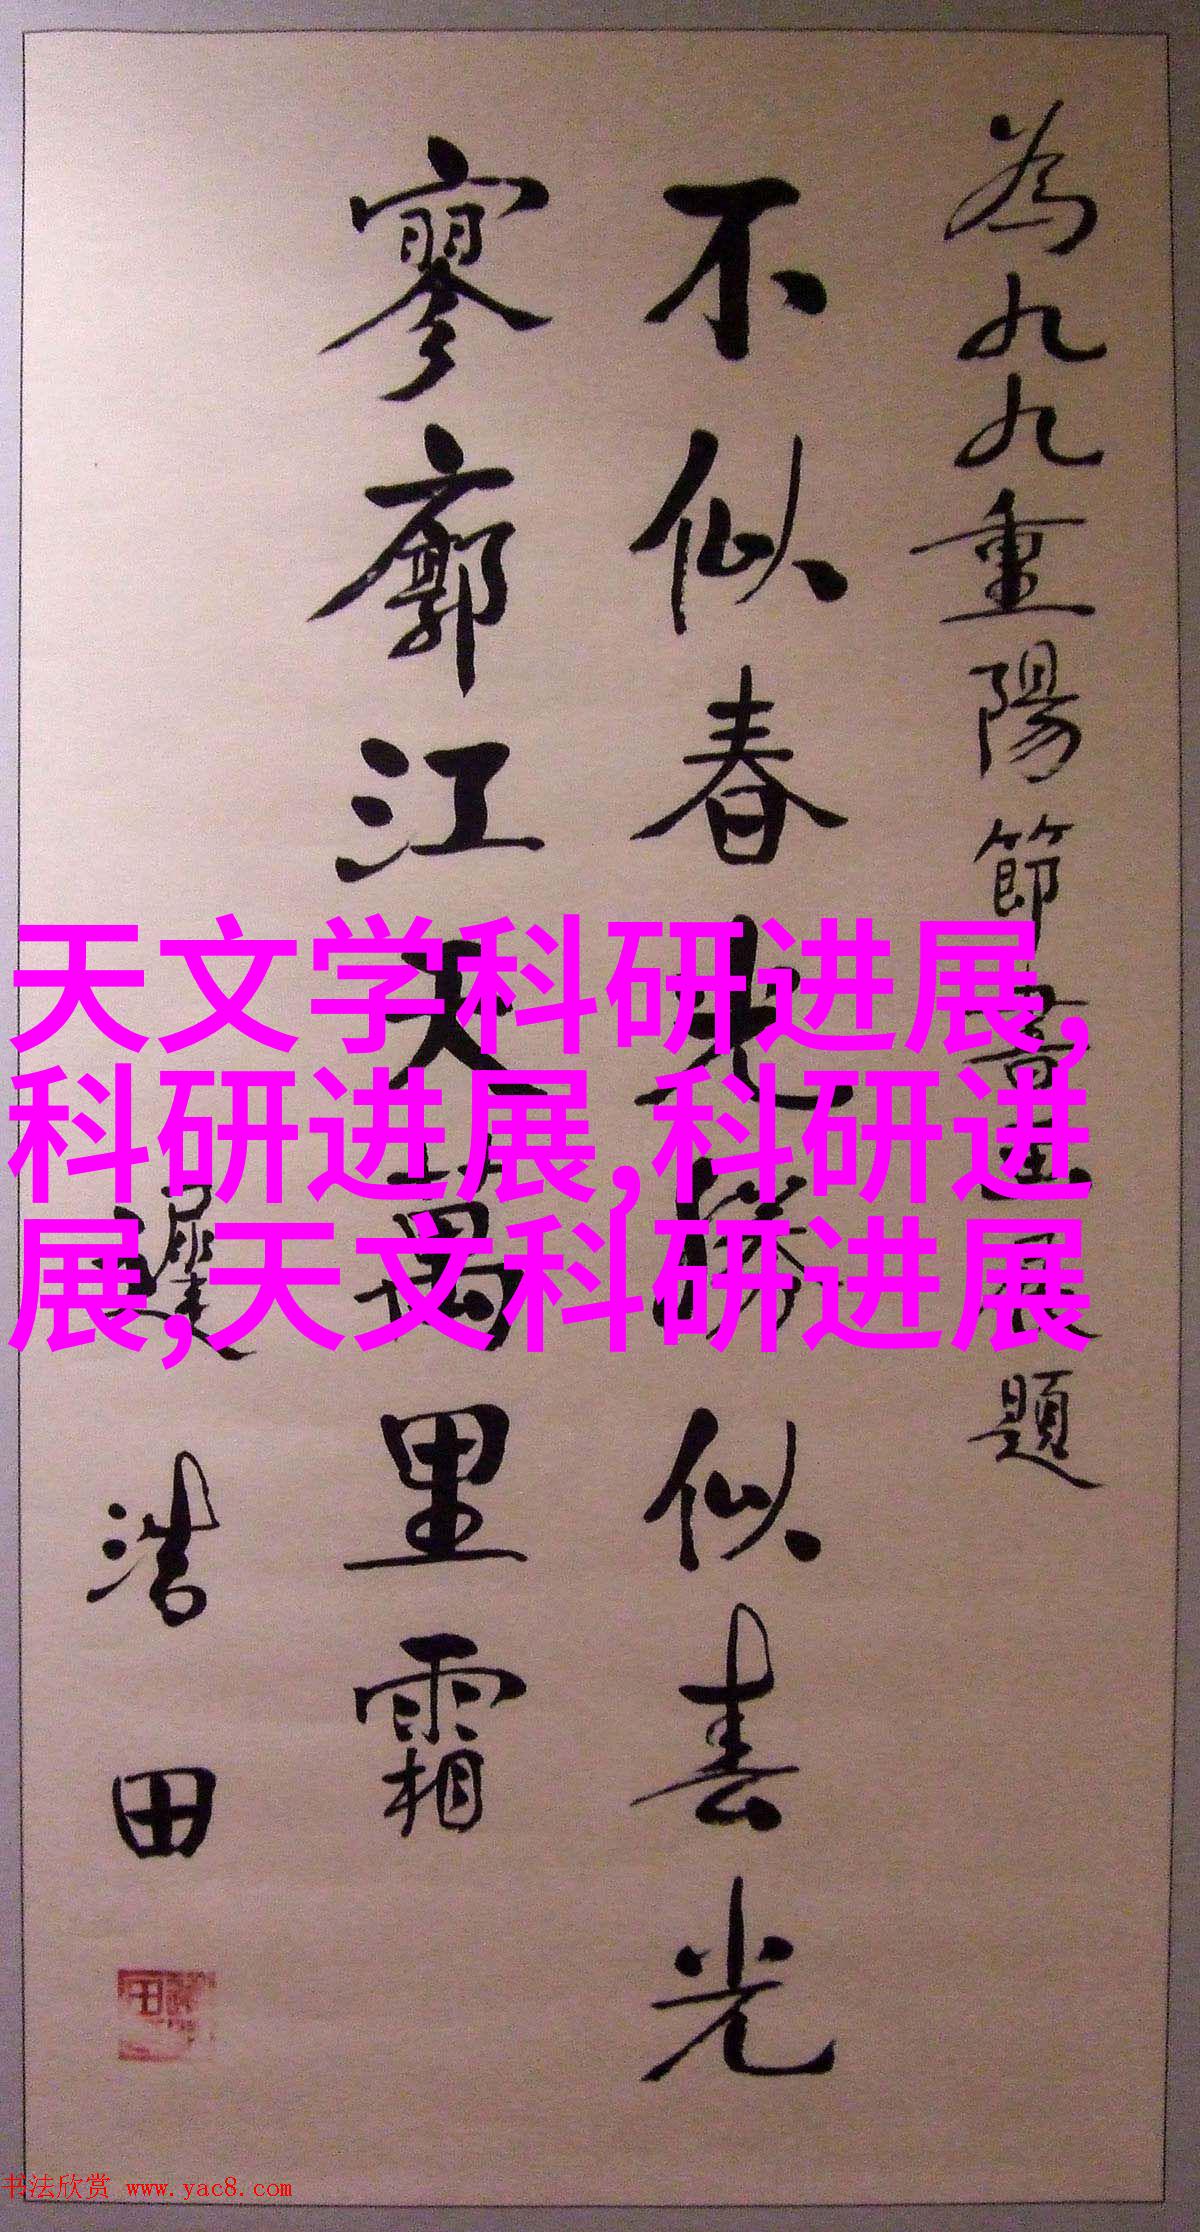 為九九重陽節書畫展題
不似春光勝似春光
寥廓江天萬里霜
遲浩田
天文学科研进展,
科研进展,科研进
展,天文科研进展
书法欣赏 www.yac8.com